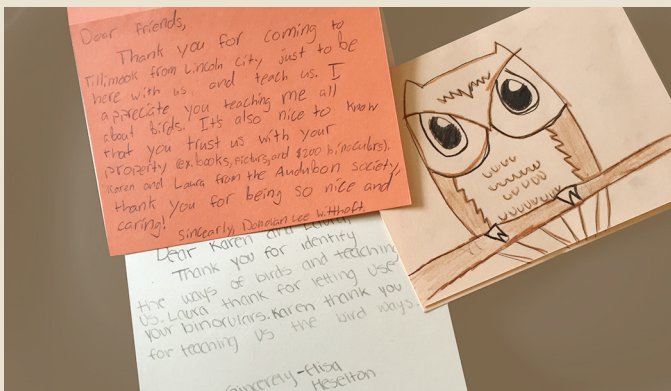 Dear friends,
Thank you for coming to
Tillimook from Lincoln City just to be
here with us, and teach us. I
appreciate you teaching me all
about birds. It's also nice to know
that you trust us with your
property (ex. books, picturs, and $200 binoculars).
Karen and Laura from the Audubon society,
thank you for being so nice and
caring!
Sincerely, Donovan Lee Witthoft.
Dear Karen and Laura,
Thank you for identify
the ways of birds and teaching
us. Laura thank for letting use
your binorulars. Karen thank you
for teaching us the bird ways.
Sincerely-Elisa
Heselton